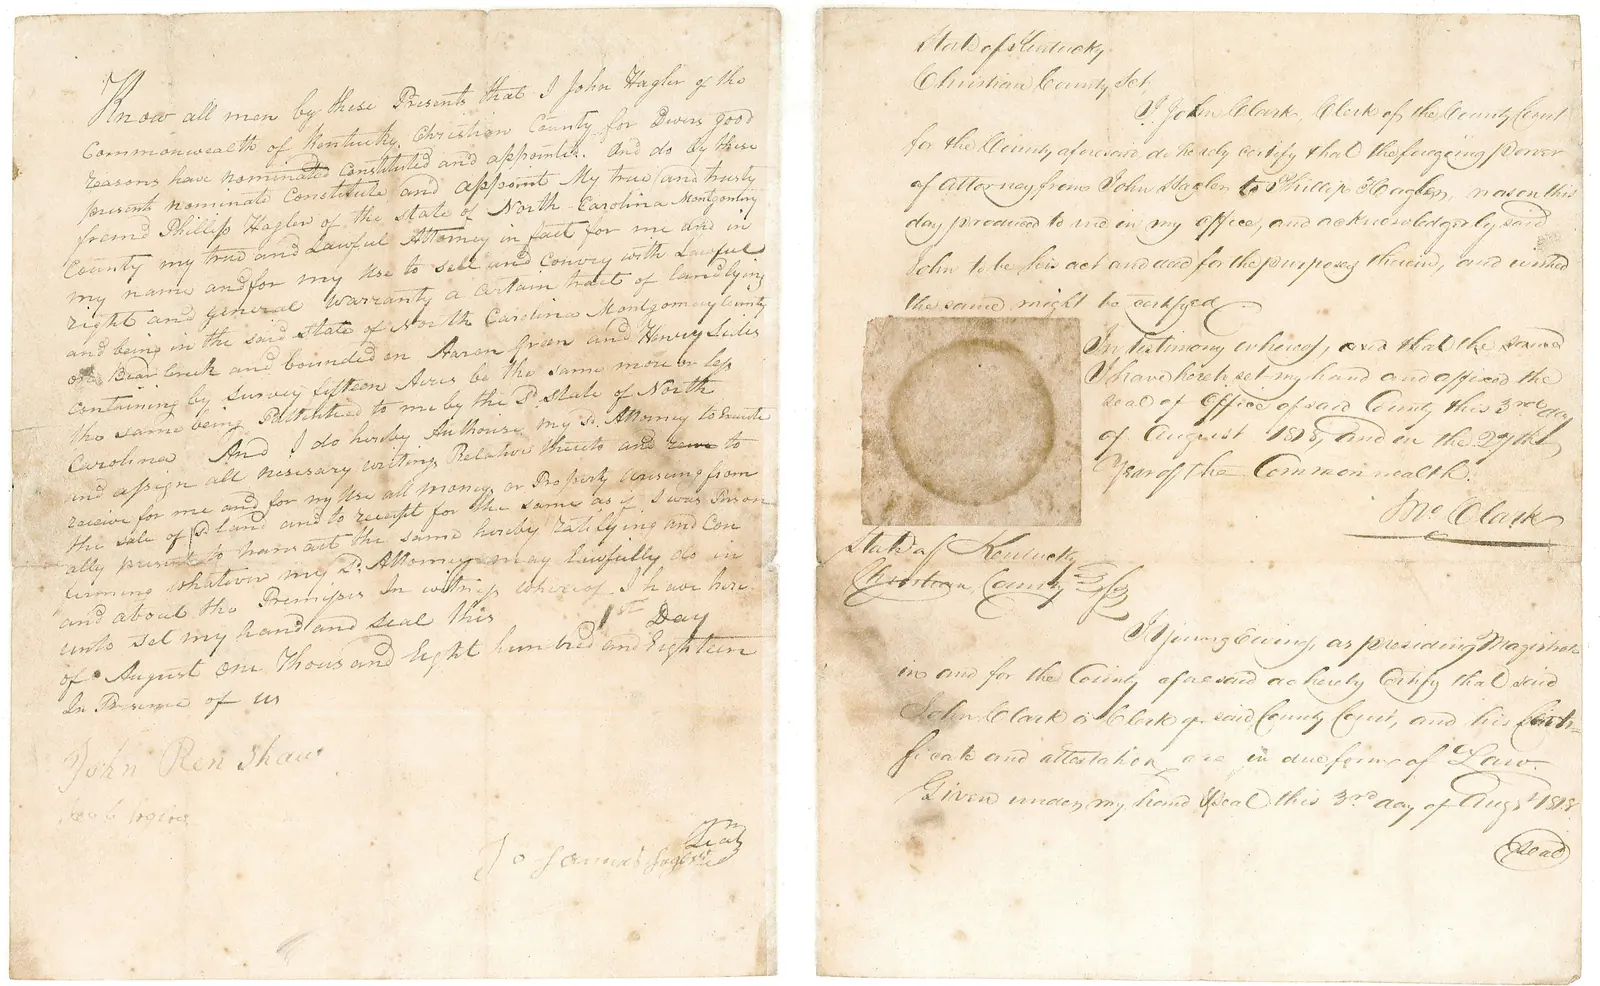 Know all men by these Presents that I John Hagler of the
Commonwealth of Kentucky Christian County for Divers good
reasons have nominated Constituted and appointed. And do by these
present nominate Constitute and appoint My true and trusty
friend Phillip Hagler of the State of North-Carolina Montgomery
County my true and Lawful Attorney in fact for me and in
my name and for my use to sell and convey with Lawful
right and general warranty a certain tract of land lying
and being in the said State of North Carolina Montgomery County
on Bear Creek and bounded on Aaron Green and Henry
containing by survey fifteen Acres be the same more or less
the same being Pattented to me by the Sd. State of North
Carolina And I do hereby Authorise my Sd. Attorney to Execute
and assign all necessary writing Relative thereto and to
receive for me and for my use all money or Property arising from
the sale of Sd Land and to receipt for the same as if I was Person
ally present to transact the same hereby ratifying and Con
firming whatever my Sd. Attorney may lawfully do in
and about the Premises In witness whereof I have here
unto set my hand and seal this 1st Day
of August one Thousand Eight hundred and Eighteen
In Presence of us
John Renshaw
Jo
Seal
State of Kentucky
Christian County Sct.
I John Clark, Clerk of the County Court
for the County aforesaid do hereby certify that the foregoing power
of Attorney, from John Hagler to Phillip Hagler, was on this
day produced to me in my office, and acknowledged by said
John to be his act and deed for the purposes therein, and wished
the same might be certifyed
In testimony whereof, and that the
I have hereto set my hand and affixed the
seal of Office of said County this 3rd day
of August 1818, and in the 27th
Year of the Commonwealth.
Jno Clark
State of Kentucky
Christian County
I Young Ewing, as presiding Magistrate
in and for the County aforesaid do hereby Certify that said
John Clark is Clerk of said County Court, and his Certi-
ficate and attestation are in due form of Law.
Given under my hand & seal this 3rd day of Augst 1818
Seal